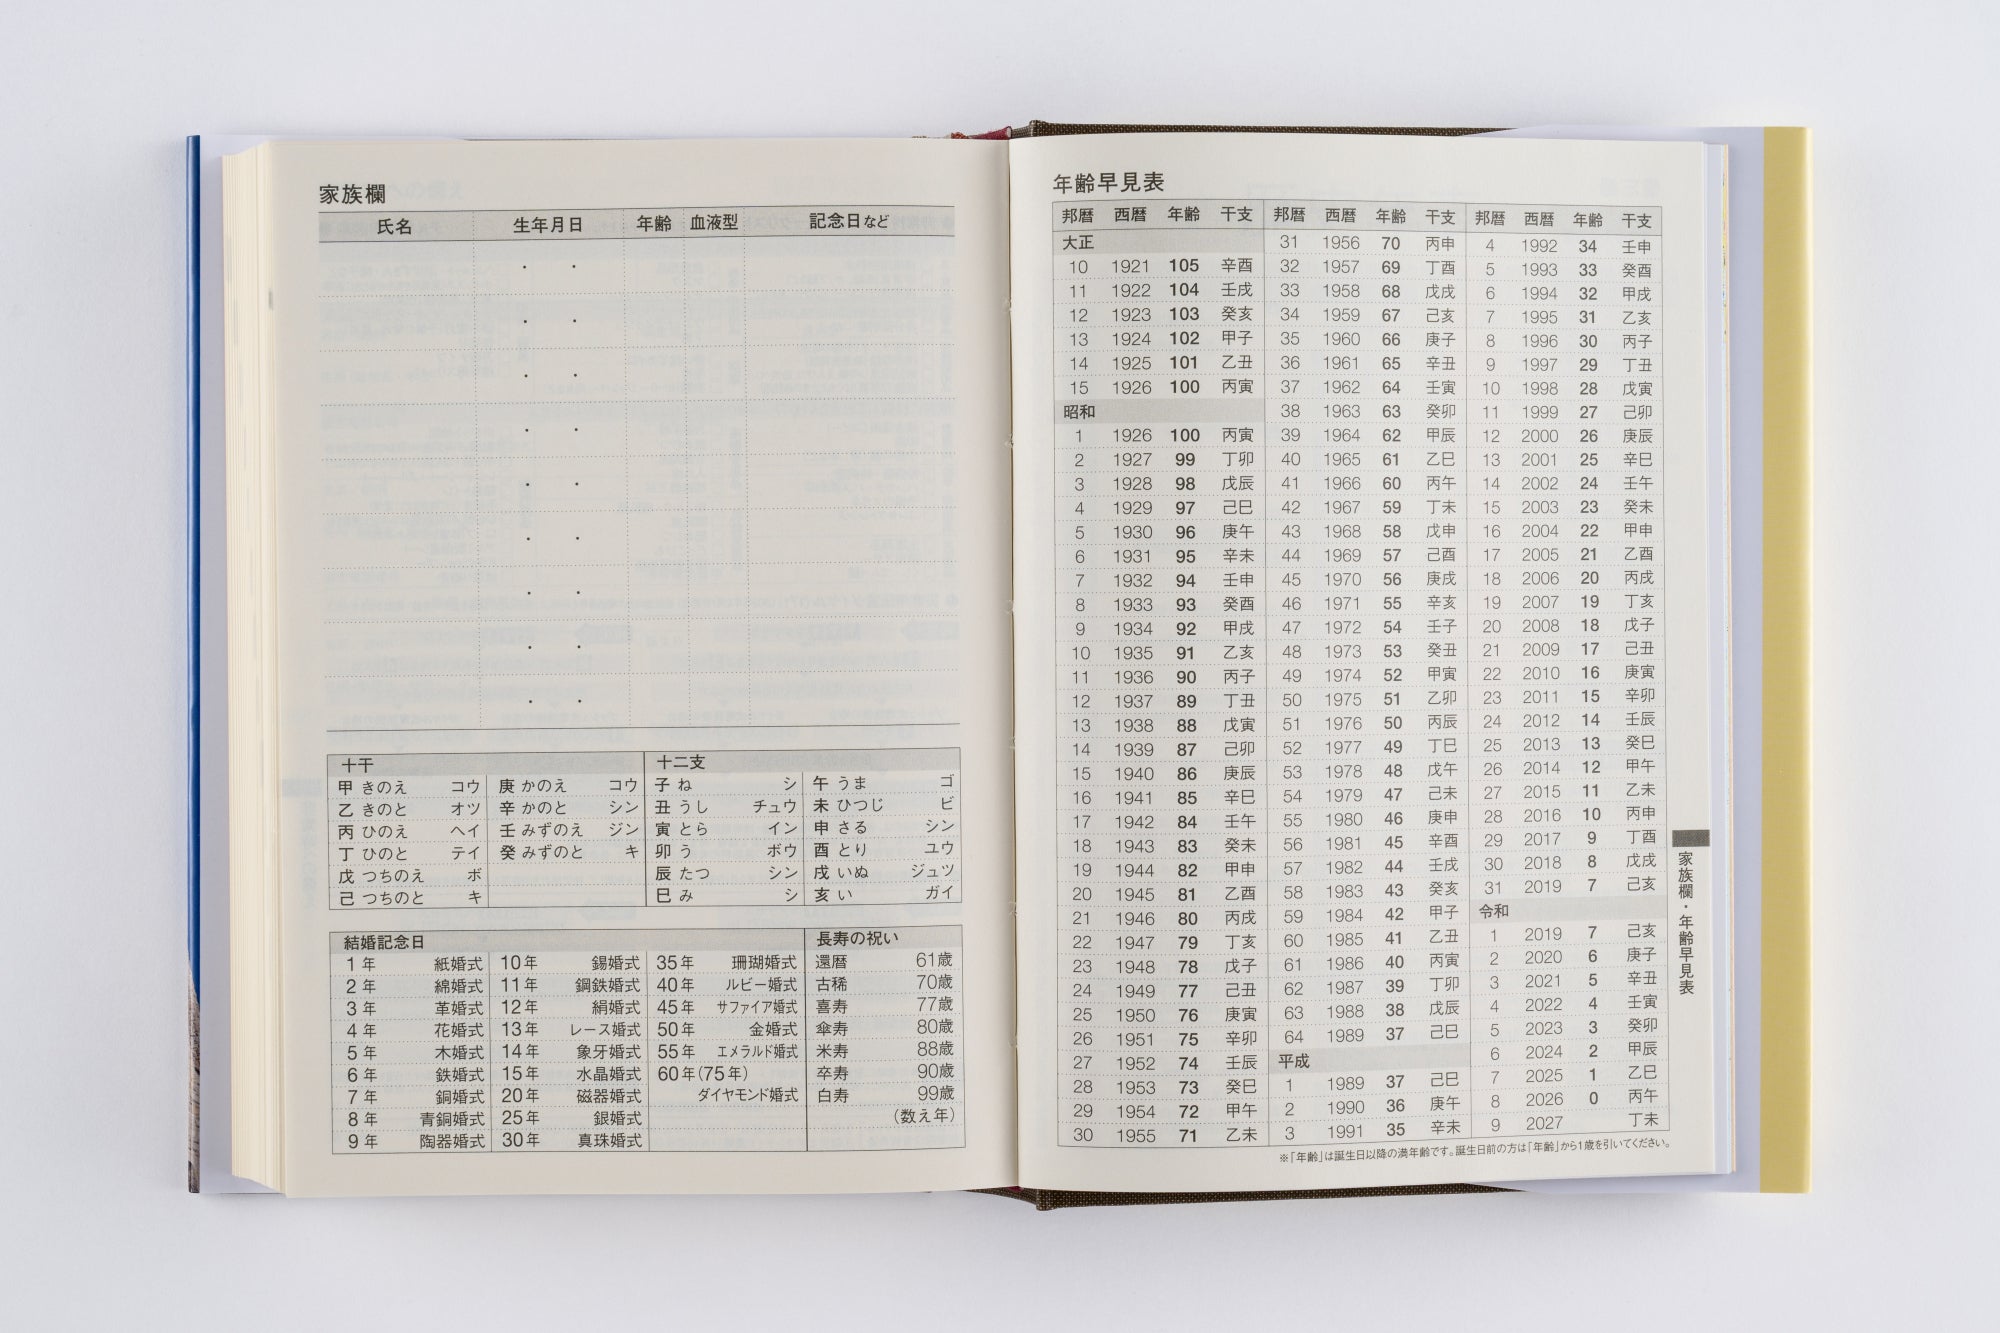 家族欄
氏名 生年月日 年齢 血液型 記念日など
十干
甲 きのえ コウ 庚 かのえ コウ
乙 きのと オツ 辛 かのと シン
丙 ひのえ ヘイ 壬 みずのえ ジン
丁 ひのと テイ 癸 みずのと キ
戊 つちのえ ボ
己 つちのと キ
十二支
子 ね シ 午 うま ゴ
丑 うし チュウ 未 ひつじ ビ
寅 とら イン 申 さる シン
卯 う ボウ 酉 とり ユウ
辰 たつ シン 戌 いぬ ジュツ
巳 み シ 亥 い ガイ
結婚記念日
1年 紙婚式 10年 錫婚式 35年 珊瑚婚式
2年 綿婚式 11年 鋼鉄婚式 40年 ルビー婚式
3年 革婚式 12年 絹婚式 45年 サファイア婚式
4年 花婚式 13年 レース婚式 50年 金婚式
5年 木婚式 14年 象牙婚式 55年 エメラルド婚式
6年 鉄婚式 15年 水晶婚式 60年(75年)
7年 銅婚式 20年 磁器婚式 ダイヤモンド婚式
8年 青銅婚式 25年 銀婚式
9年 陶器婚式 30年 真珠婚式
長寿の祝い
還暦 61歳
古稀 70歳
喜寿 77歳
傘寿 80歳
米寿 88歳
卒寿 90歳
白寿 99歳
(数え年)
年齢早見表
邦暦 西暦 年齢 干支
大正
10 1921 105 辛酉
11 1922 104 壬戌
12 1923 103 癸亥
13 1924 102 甲子
14 1925 101 乙丑
15 1926 100 丙寅
昭和
1 1926 100 丙寅
2 1927 99 丁卯
3 1928 98 戊辰
4 1929 97 己巳
5 1930 96 庚午
6 1931 95 辛未
7 1932 94 壬申
8 1933 93 癸酉
9 1934 92 甲戌
10 1935 91 乙亥
11 1936 90 丙子
12 1937 89 丁丑
13 1938 88 戊寅
14 1939 87 己卯
15 1940 86 庚辰
16 1941 85 辛巳
17 1942 84 壬午
18 1943 83 癸未
19 1944 82 甲申
20 1945 81 乙酉
21 1946 80 丙戌
22 1947 79 丁亥
23 1948 78 戊子
24 1949 77 己丑
25 1950 76 庚寅
26 1951 75 辛卯
27 1952 74 壬辰
28 1953 73 癸巳
29 1954 72 甲午
30 1955 71 乙未
邦暦 西暦 年齢 干支
31 1956 70 丙申
32 1957 69 丁酉
33 1958 68 戊戌
34 1959 67 己亥
35 1960 66 庚子
36 1961 65 辛丑
37 1962 64 壬寅
38 1963 63 癸卯
39 1964 62 甲辰
40 1965 61 乙巳
41 1966 60 丙午
42 1967 59 丁未
43 1968 58 戊申
44 1969 57 己酉
45 1970 56 庚戌
46 1971 55 辛亥
47 1972 54 壬子
48 1973 53 癸丑
49 1974 52 甲寅
50 1975 51 乙卯
51 1976 50 丙辰
52 1977 49 丁巳
53 1978 48 戊午
54 1979 47 己未
55 1980 46 庚申
56 1981 45 辛酉
57 1982 44 壬戌
58 1983 43 癸亥
59 1984 42 甲子
60 1985 41 乙丑
61 1986 40 丙寅
62 1987 39 丁卯
63 1988 38 戊辰
64 1989 37 己巳
平成
1 1989 37 己巳
2 1990 36 庚午
3 1991 35 辛未
邦暦 西暦 年齢 干支
4 1992 34 壬申
5 1993 33 癸酉
6 1994 32 甲戌
7 1995 31 乙亥
8 1996 30 丙子
9 1997 29 丁丑
10 1998 28 戊寅
11 1999 27 己卯
12 2000 26 庚辰
13 2001 25 辛巳
14 2002 24 壬午
15 2003 23 癸未
16 2004 22 甲申
17 2005 21 乙酉
18 2006 20 丙戌
19 2007 19 丁亥
20 2008 18 戊子
21 2009 17 己丑
22 2010 16 庚寅
23 2011 15 辛卯
24 2012 14 壬辰
25 2013 13 癸巳
26 2014 12 甲午
27 2015 11 乙未
28 2016 10 丙申
29 2017 9 丁酉
30 2018 8 戊戌
31 2019 7 己亥
令和
1 2019 7 己亥
2 2020 6 庚子
3 2021 5 辛丑
4 2022 4 壬寅
5 2023 3 癸卯
6 2024 2 甲辰
7 2025 1 乙巳
8 2026 0 丙午
9 2027 丁未
※「年齢」は誕生日以降の満年齢です。誕生日前の方は「年齢」から1歳を引いてください。
家族欄・年齢早見表